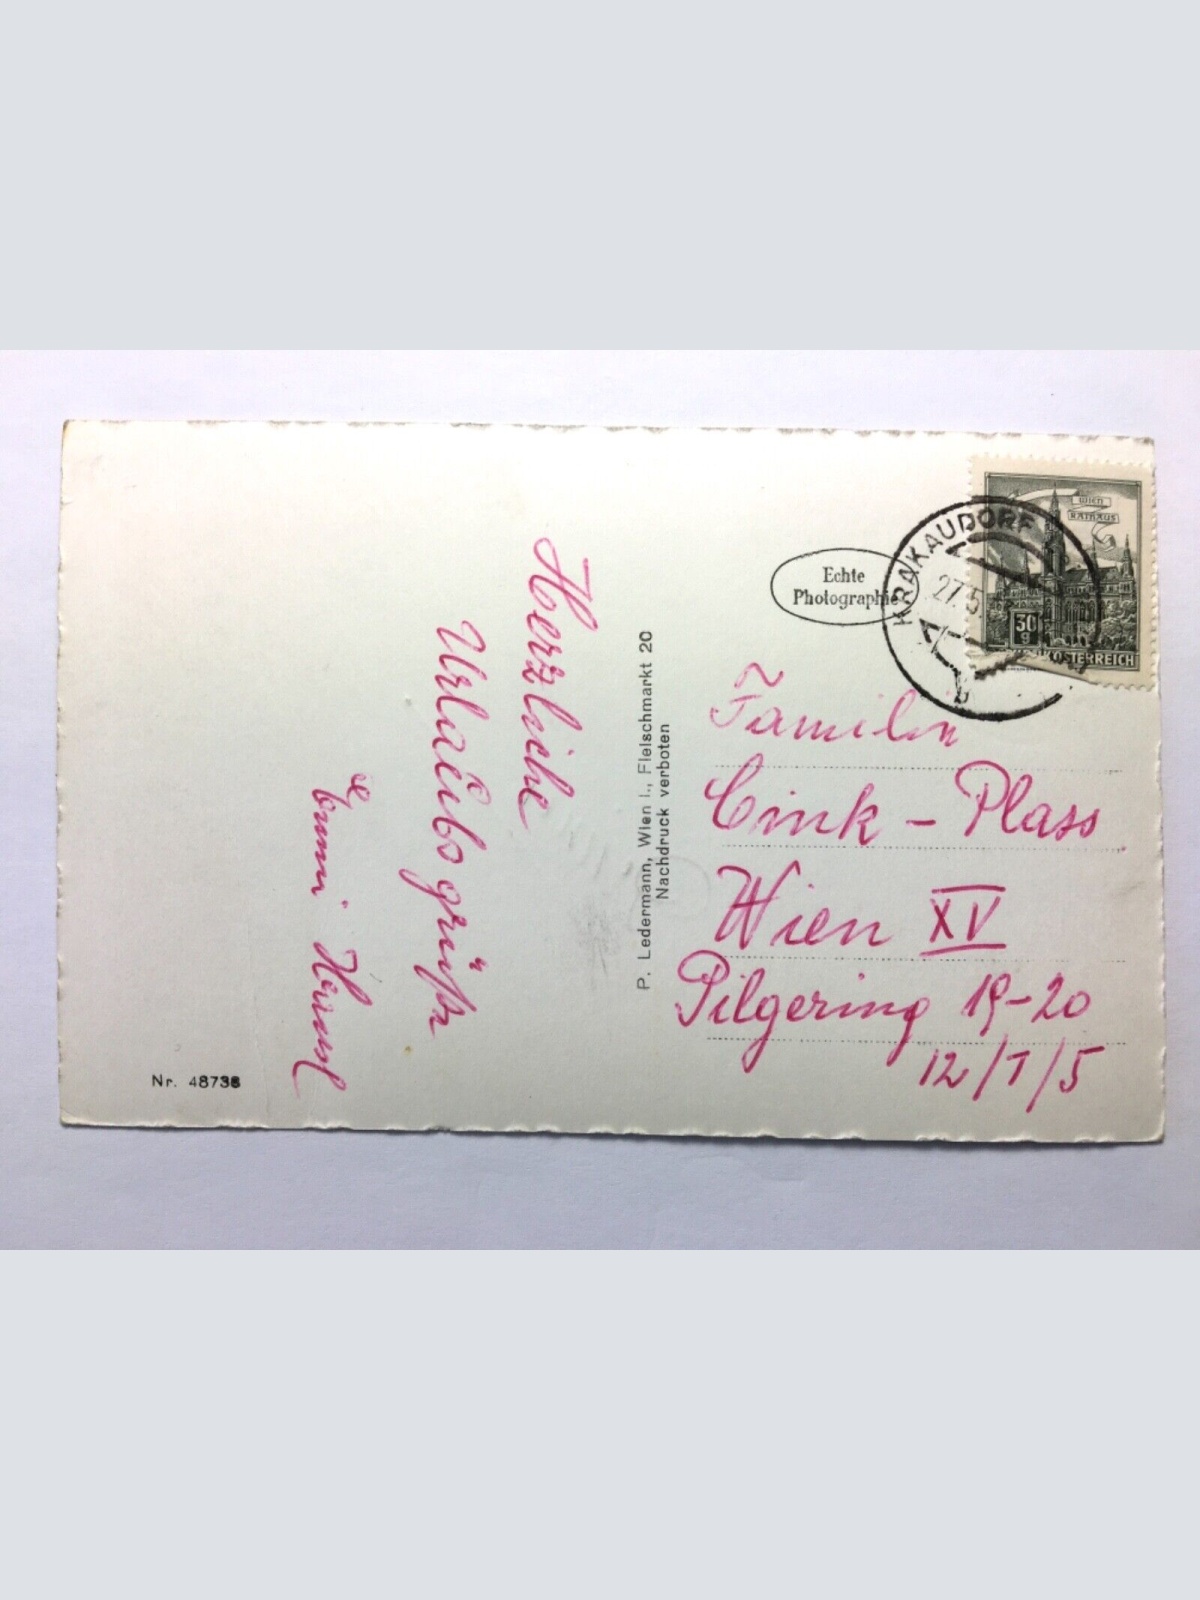 Herzliche
Urlaubsgrüße
P. Ledermann, Wien I., Fleischmarkt 20
Nachdruck verboten
Nr. 48738
Echte
Photographie
KRAKAUDORF
27.5.
b
WIEN
RATHAUS
30
g
REPUBLIK ÖSTERREICH
Familie
Cink - Plass
Wien XV
Pilgering 19-20
12/1/5